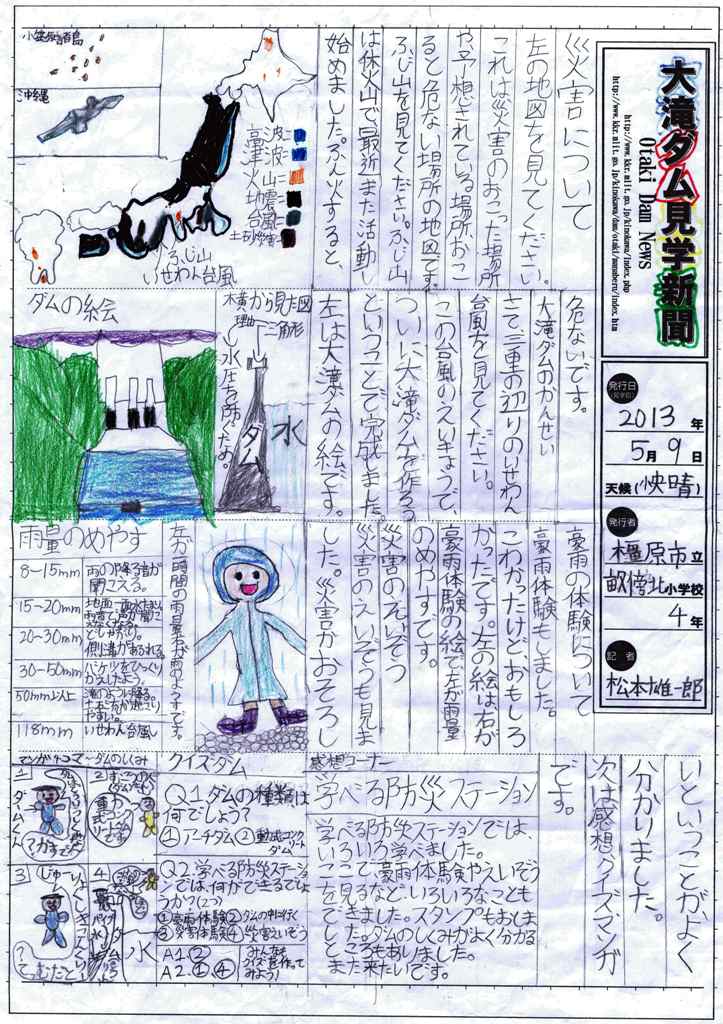 大滝ダム見学新聞
Otaki Dam News
http://www.kkr.mlit.go.jp/kinokawa/index.php
発行日
2013年
5月9日
天候(快晴)
発行者
橿原市立
畝傍北小学校
4年
記者
松本雄一郎
災害について
左の地図を見てください。
これは災害のおこった場所
や予想されている場所おこ
ると危ない場所の地図です。
ふじ山を見てください。ふじ山
は休火山で最近また活動し
始めました。ふん火すると、
小笠原諸島
沖縄
高波
津波
火山
地震
台風
土砂災害
ふじ山
いせわん台風
危ないです。
大滝ダムのかんせい
さて、三重の辺りのいせわん
台風を見てください。
この台風のえいきょうで、
ついに大滝ダムを作る
ということで完成しました。
左は大滝ダムの絵です。
横から見た図
三角形
理由
水圧を防ぐため。
ダム
水
ダムの絵
豪雨の体験について
豪雨体験もしました。
こわかったけどおもしろ
かったです。左の絵は右が
豪雨体験の絵で左が雨量
のめやすです。
災害のえいぞう
災害のえいぞうも見ま
した。災害がおそろし
雨量のめやす
8〜15mm 雨の降る音が聞こえる。
15〜20mm
20〜30mm
30〜50mm バケツをひっくりかえしたよう。
50mm以上 滝のように降る。
118mm いせわん台風
いということがよく
分かりました。
次は感想、クイズ、マンガ
です。
感想コーナー
学べる防災ステーション
学べる防災ステーションでは、
いろいろ学べました。
ここで、豪雨体験やえいぞう
を見るなど、いろいろなことも
できました。スタンプもおしま
した。ダムのしくみがよく分かる
ところもありました。
また来たいです。
クイズダム
Q1.ダムの種類は
何でしょう?
①アーチダム②重力式コンクリートダム
Q2.学べる防災ステーショ
ンでは、何ができるでしょ
うか?(2つ)
①豪雨体験②ダムの中に行く
③災害体験④災害えいぞう
A1.②
A2.①④
みんなも
クイズを作って
みよう!
マンガ4コマ〜ダムのしくみ
1
2
3
4
水